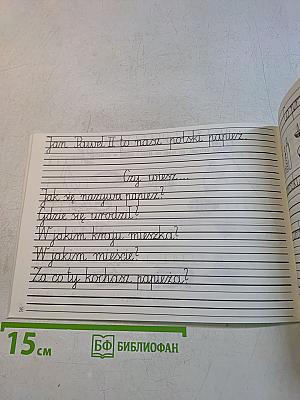 Jan Paweł II to nasz polski papież.
Czy wiesz...
Jak się nazywa papież?
Gdzie się urodził?
W jakim kraju mieszka?
W jakim mieście?
Za co ty kochasz papieża?
15 см
БФ БИБЛИОФАН